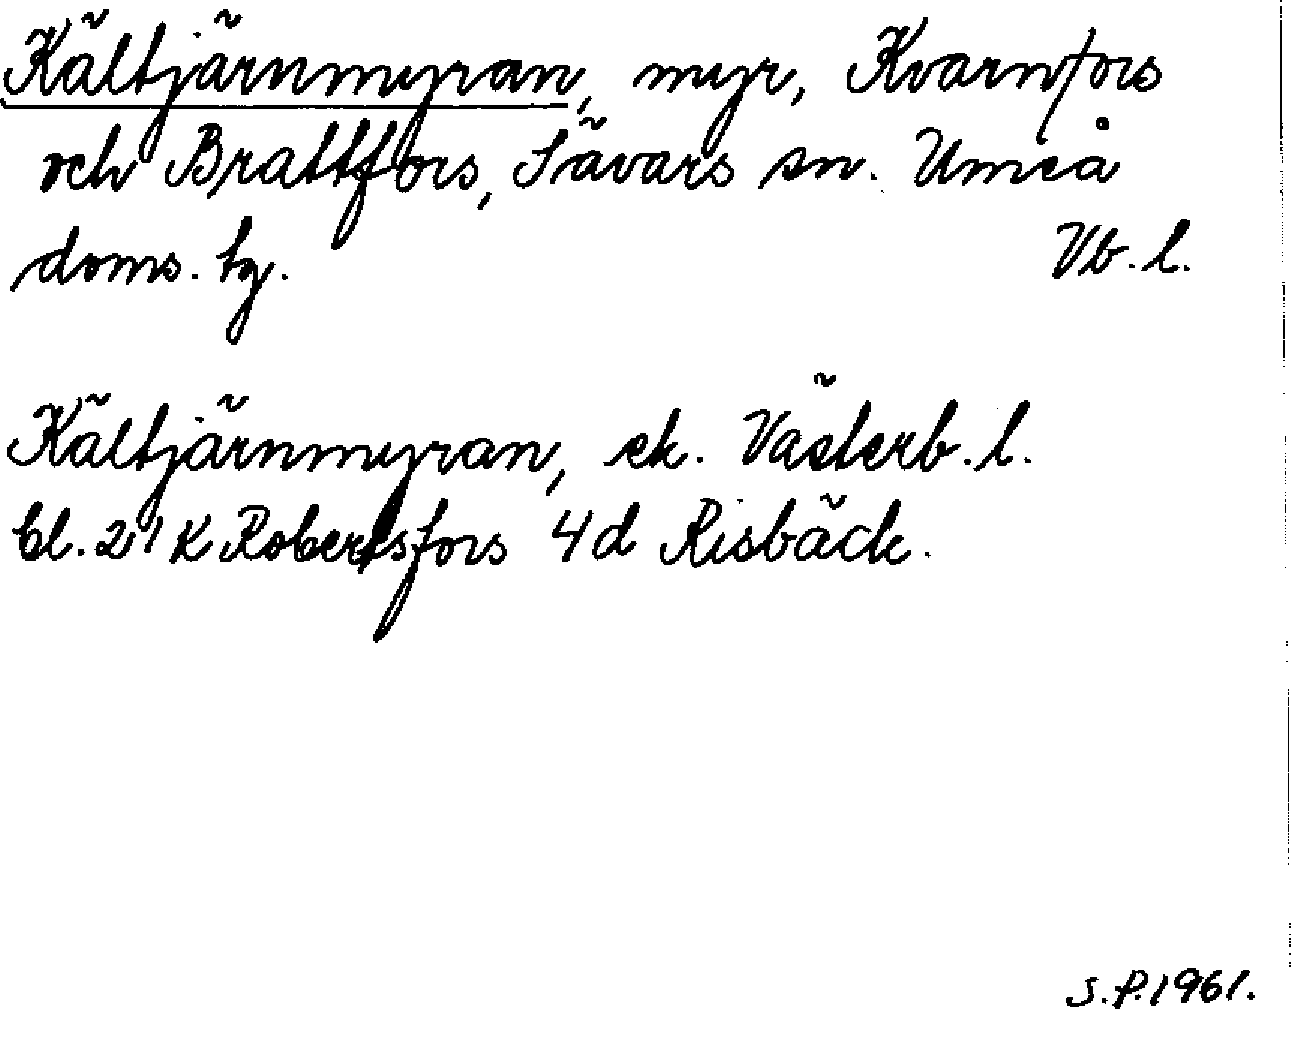 Kältjärnmyran, myr, Kvarnfors
och Brattfors, Sävars sn. Umeå
doms. tg. Vb. l.
Kältjärnmyran, ek. Västerb. l.
bl. 21 K Robertsfors 4d Risbäck.
S.P. 1961.